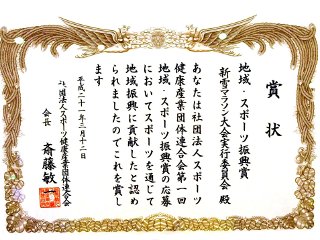 賞状
地域・スポーツ振興賞
新雪マラソン大会実行委員会 殿
あなたは社団法人スポーツ
健康産業団体連合会第一回
地域・スポーツ振興賞の応募
においてスポーツを通じて
地域振興に貢献したと認め
られましたのでこれを賞し
ます
平成二十一年二月十二日
社団法人スポーツ健康産業団体連合会
会長 斎藤敏一